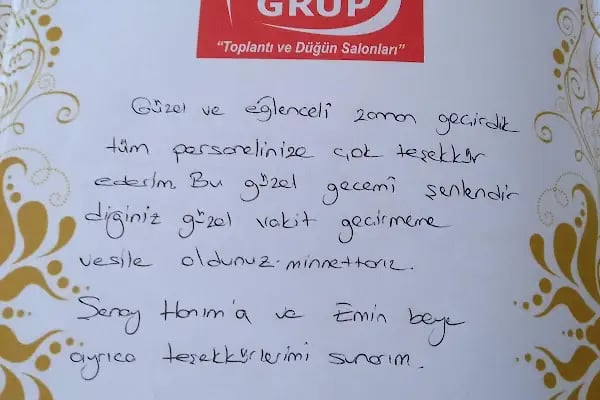 GRUP
“Toplantı ve Düğün Salonları”
Güzel ve eğlenceli zaman geçirdik
tüm personelinize çok teşekkür
ederim. Bu güzel gecemi şenlendir
diğiniz güzel vakit geçirmeme
vesile oldunuz. minnettarız.
Şenay Hanım'a ve Emin beye
ayrıca teşekkürlerimi sunarım.